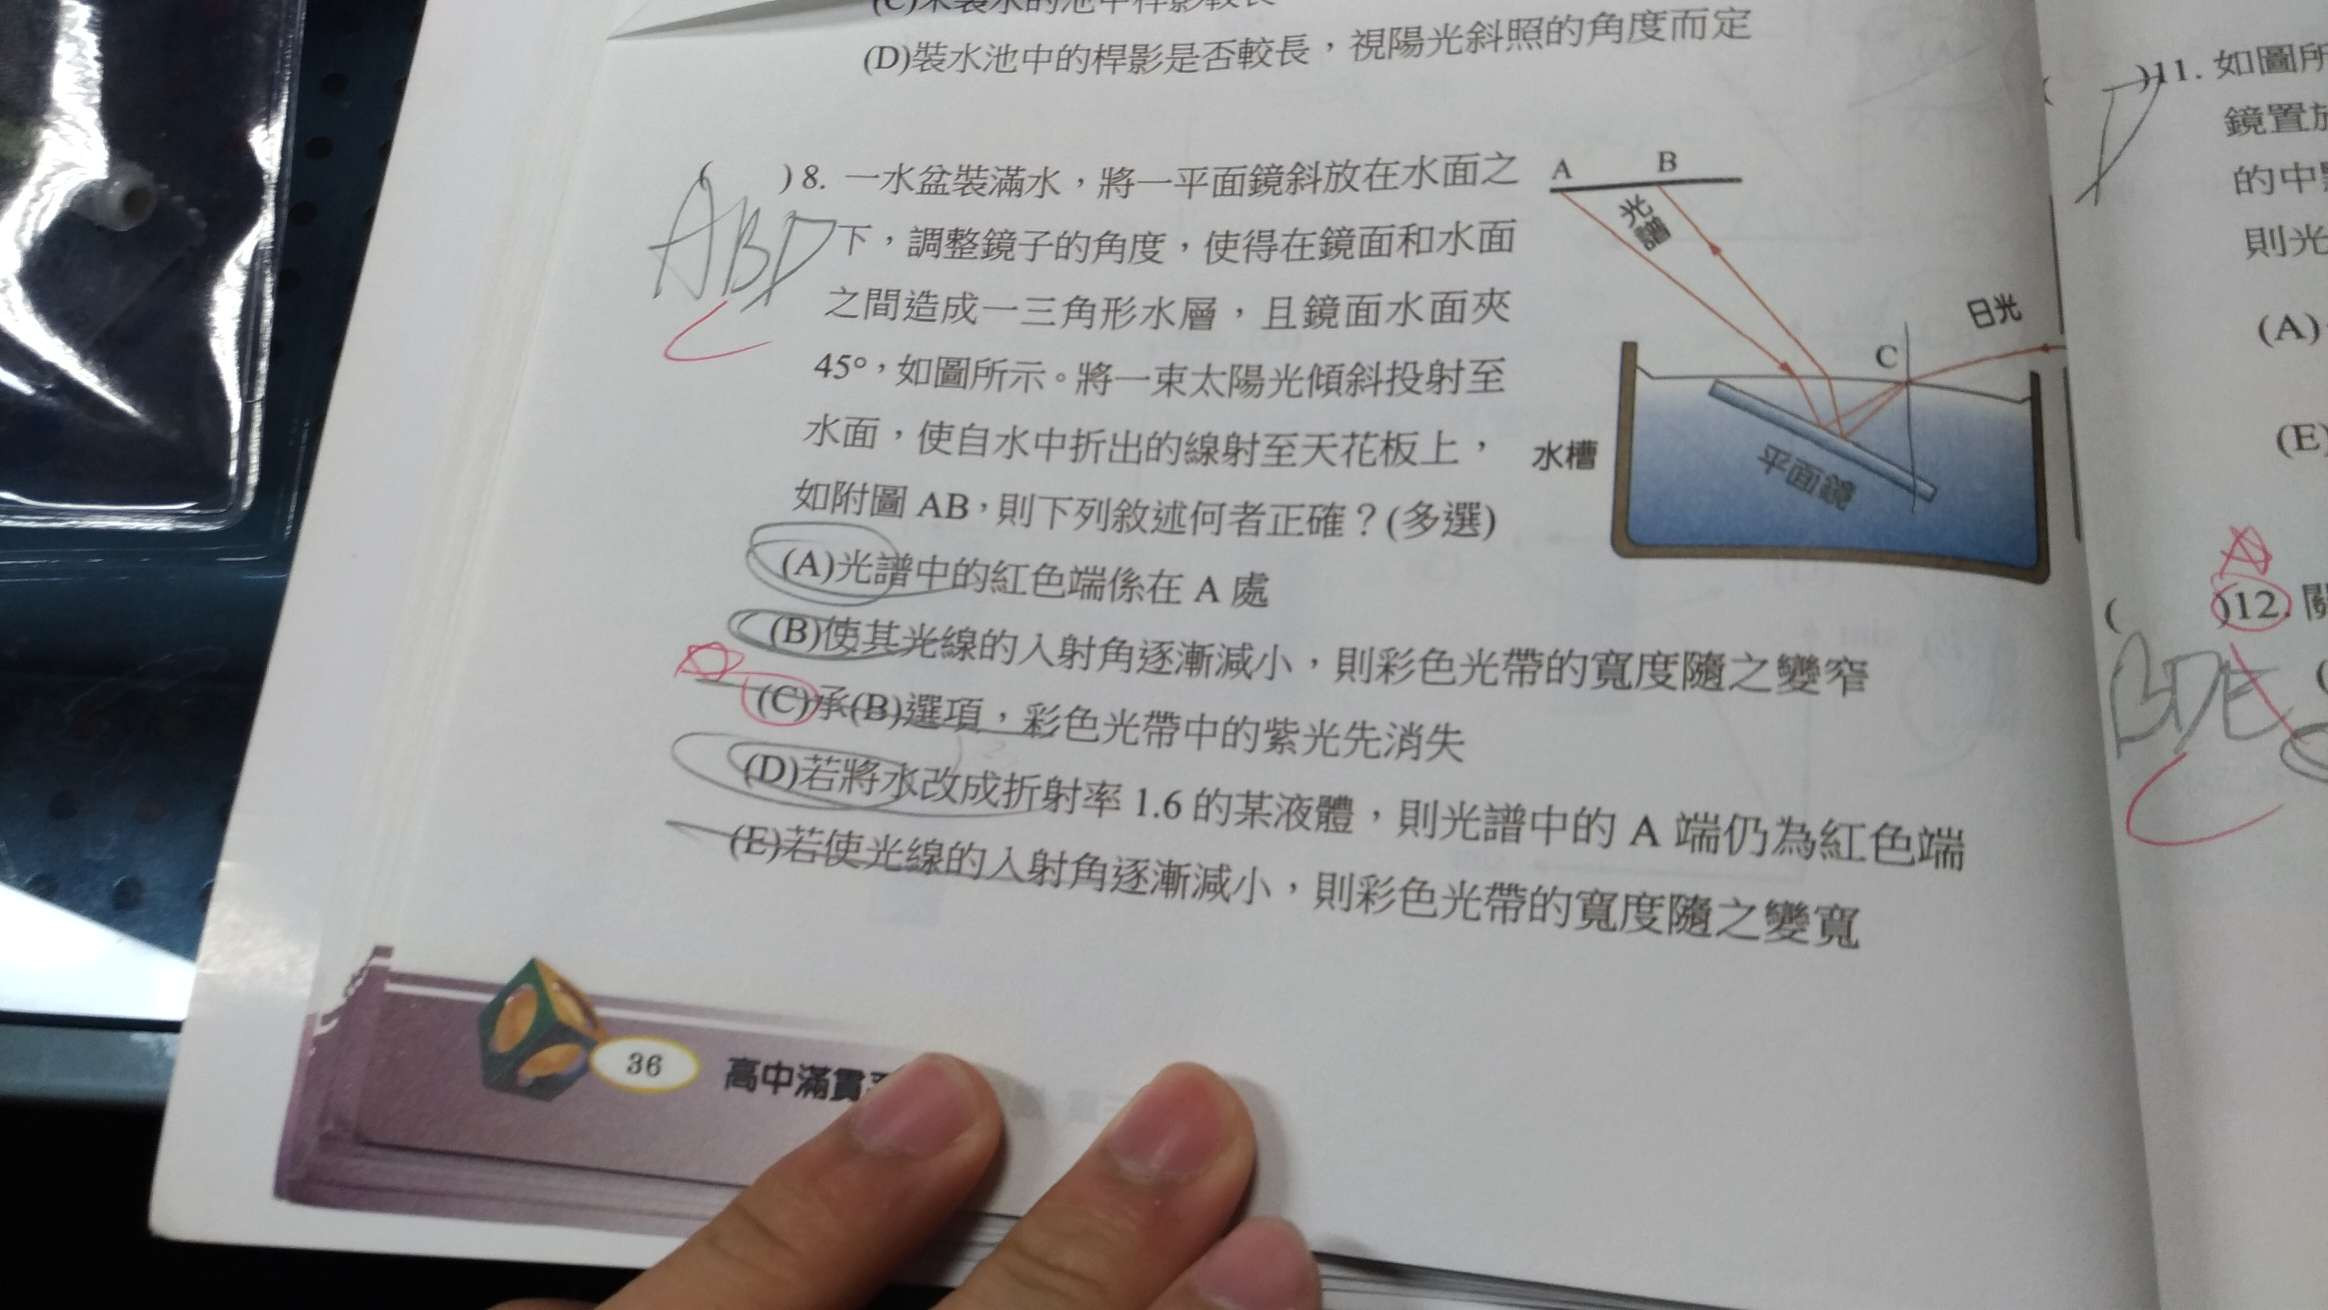 (D)裝水池中的桿影是否較長，視陽光斜照的角度而定
( )8. 一水盆裝滿水，將一平面鏡斜放在水面之
下，調整鏡子的角度，使得在鏡面和水面
之間造成一三角形水層，且鏡面水面夾
45°，如圖所示。將一束太陽光傾斜投射至
水面，使自水中折出的線射至天花板上，
如附圖 AB，則下列敘述何者正確？(多選)
ABD
C
A B
光譜
日光
C
水槽
平面鏡
(A)光譜中的紅色端係在 A 處
(B)使其光線的入射角逐漸減小，則彩色光帶的寬度隨之變窄
(C)承(B)選項，彩色光帶中的紫光先消失
(D)若將水改成折射率 1.6 的某液體，則光譜中的 A 端仍為紅色端
(E)若使光線的入射角逐漸減小，則彩色光帶的寬度隨之變寬
36 高中滿貫
)11. 如圖所
D
鏡置放
的中
則光
(A)
(E)
( )12. 關
BDE